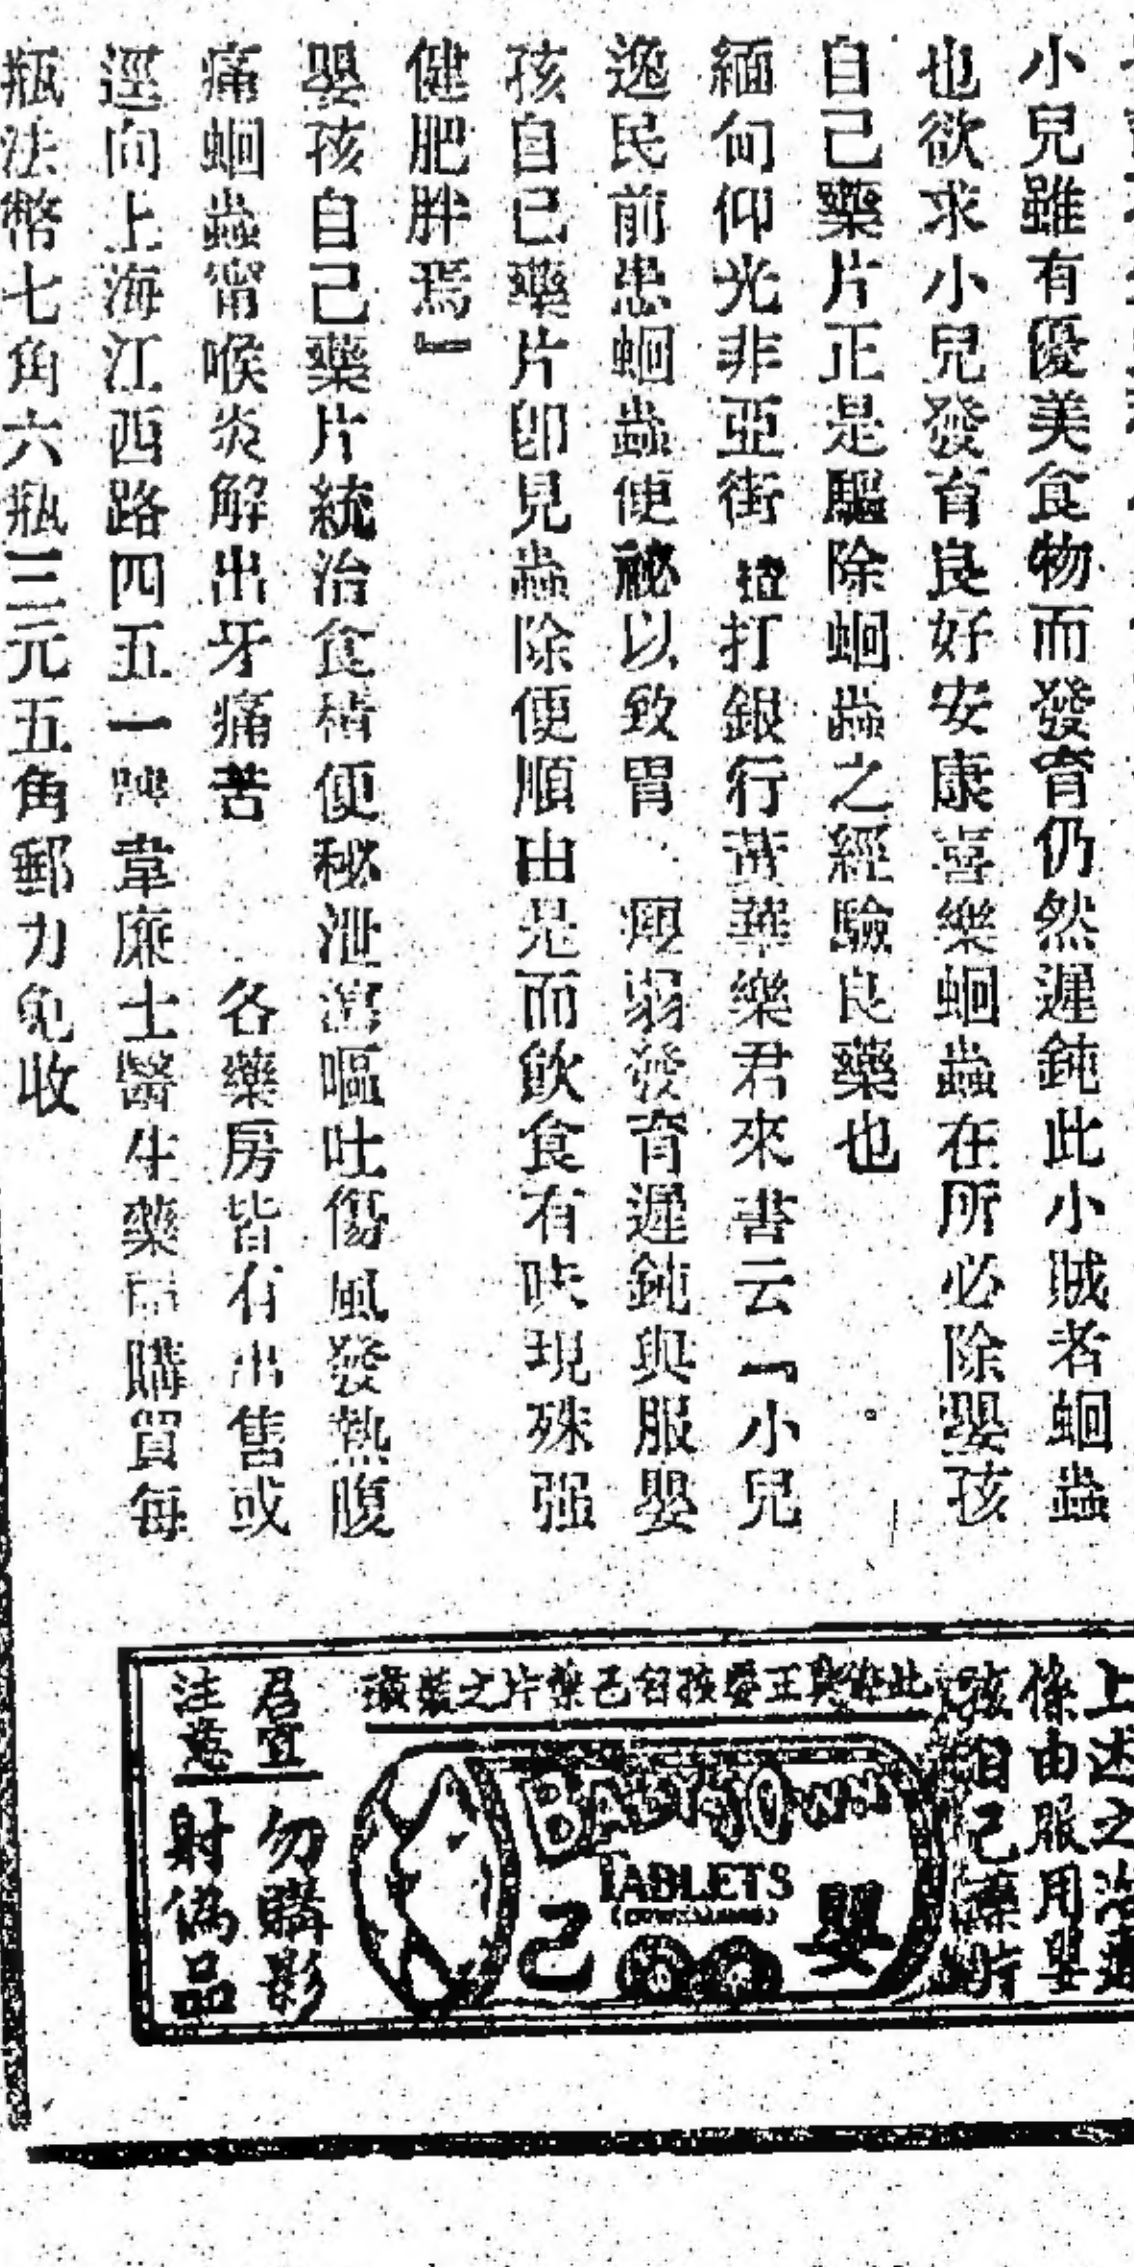 小兒雖有優美食物而發育仍然遲鈍此小賊者蛔蟲
也欲求小兒發育良好安康喜樂蛔蟲在所必除嬰孩
自己藥片正是驅除蛔蟲之經驗良藥也
緬甸仰光非亞街打銀行黃華樂君來書云「小兒
逸民前患蛔蟲便祕以致胃弱發育遲鈍與服嬰
孩自己藥片卽見蟲除便順由是而飲食有味現殊强
健肥胖焉」
嬰孩自己藥片統治食積便秘泄瀉嘔吐傷風發熱腹
痛蛔蟲喉炎解出牙痛苦 各藥房皆有出售或
逕向上海江西路四五一號韋廉士醫生藥局購買每
瓶法幣七角六瓶三元五角郵力免收
上述之治
係由服用嬰
孩自己藥片
此係眞正嬰孩自己藥片之裝璜
BABY'S OWN
TABLETS
嬰
己
君宜
注意
勿購影
射偽品